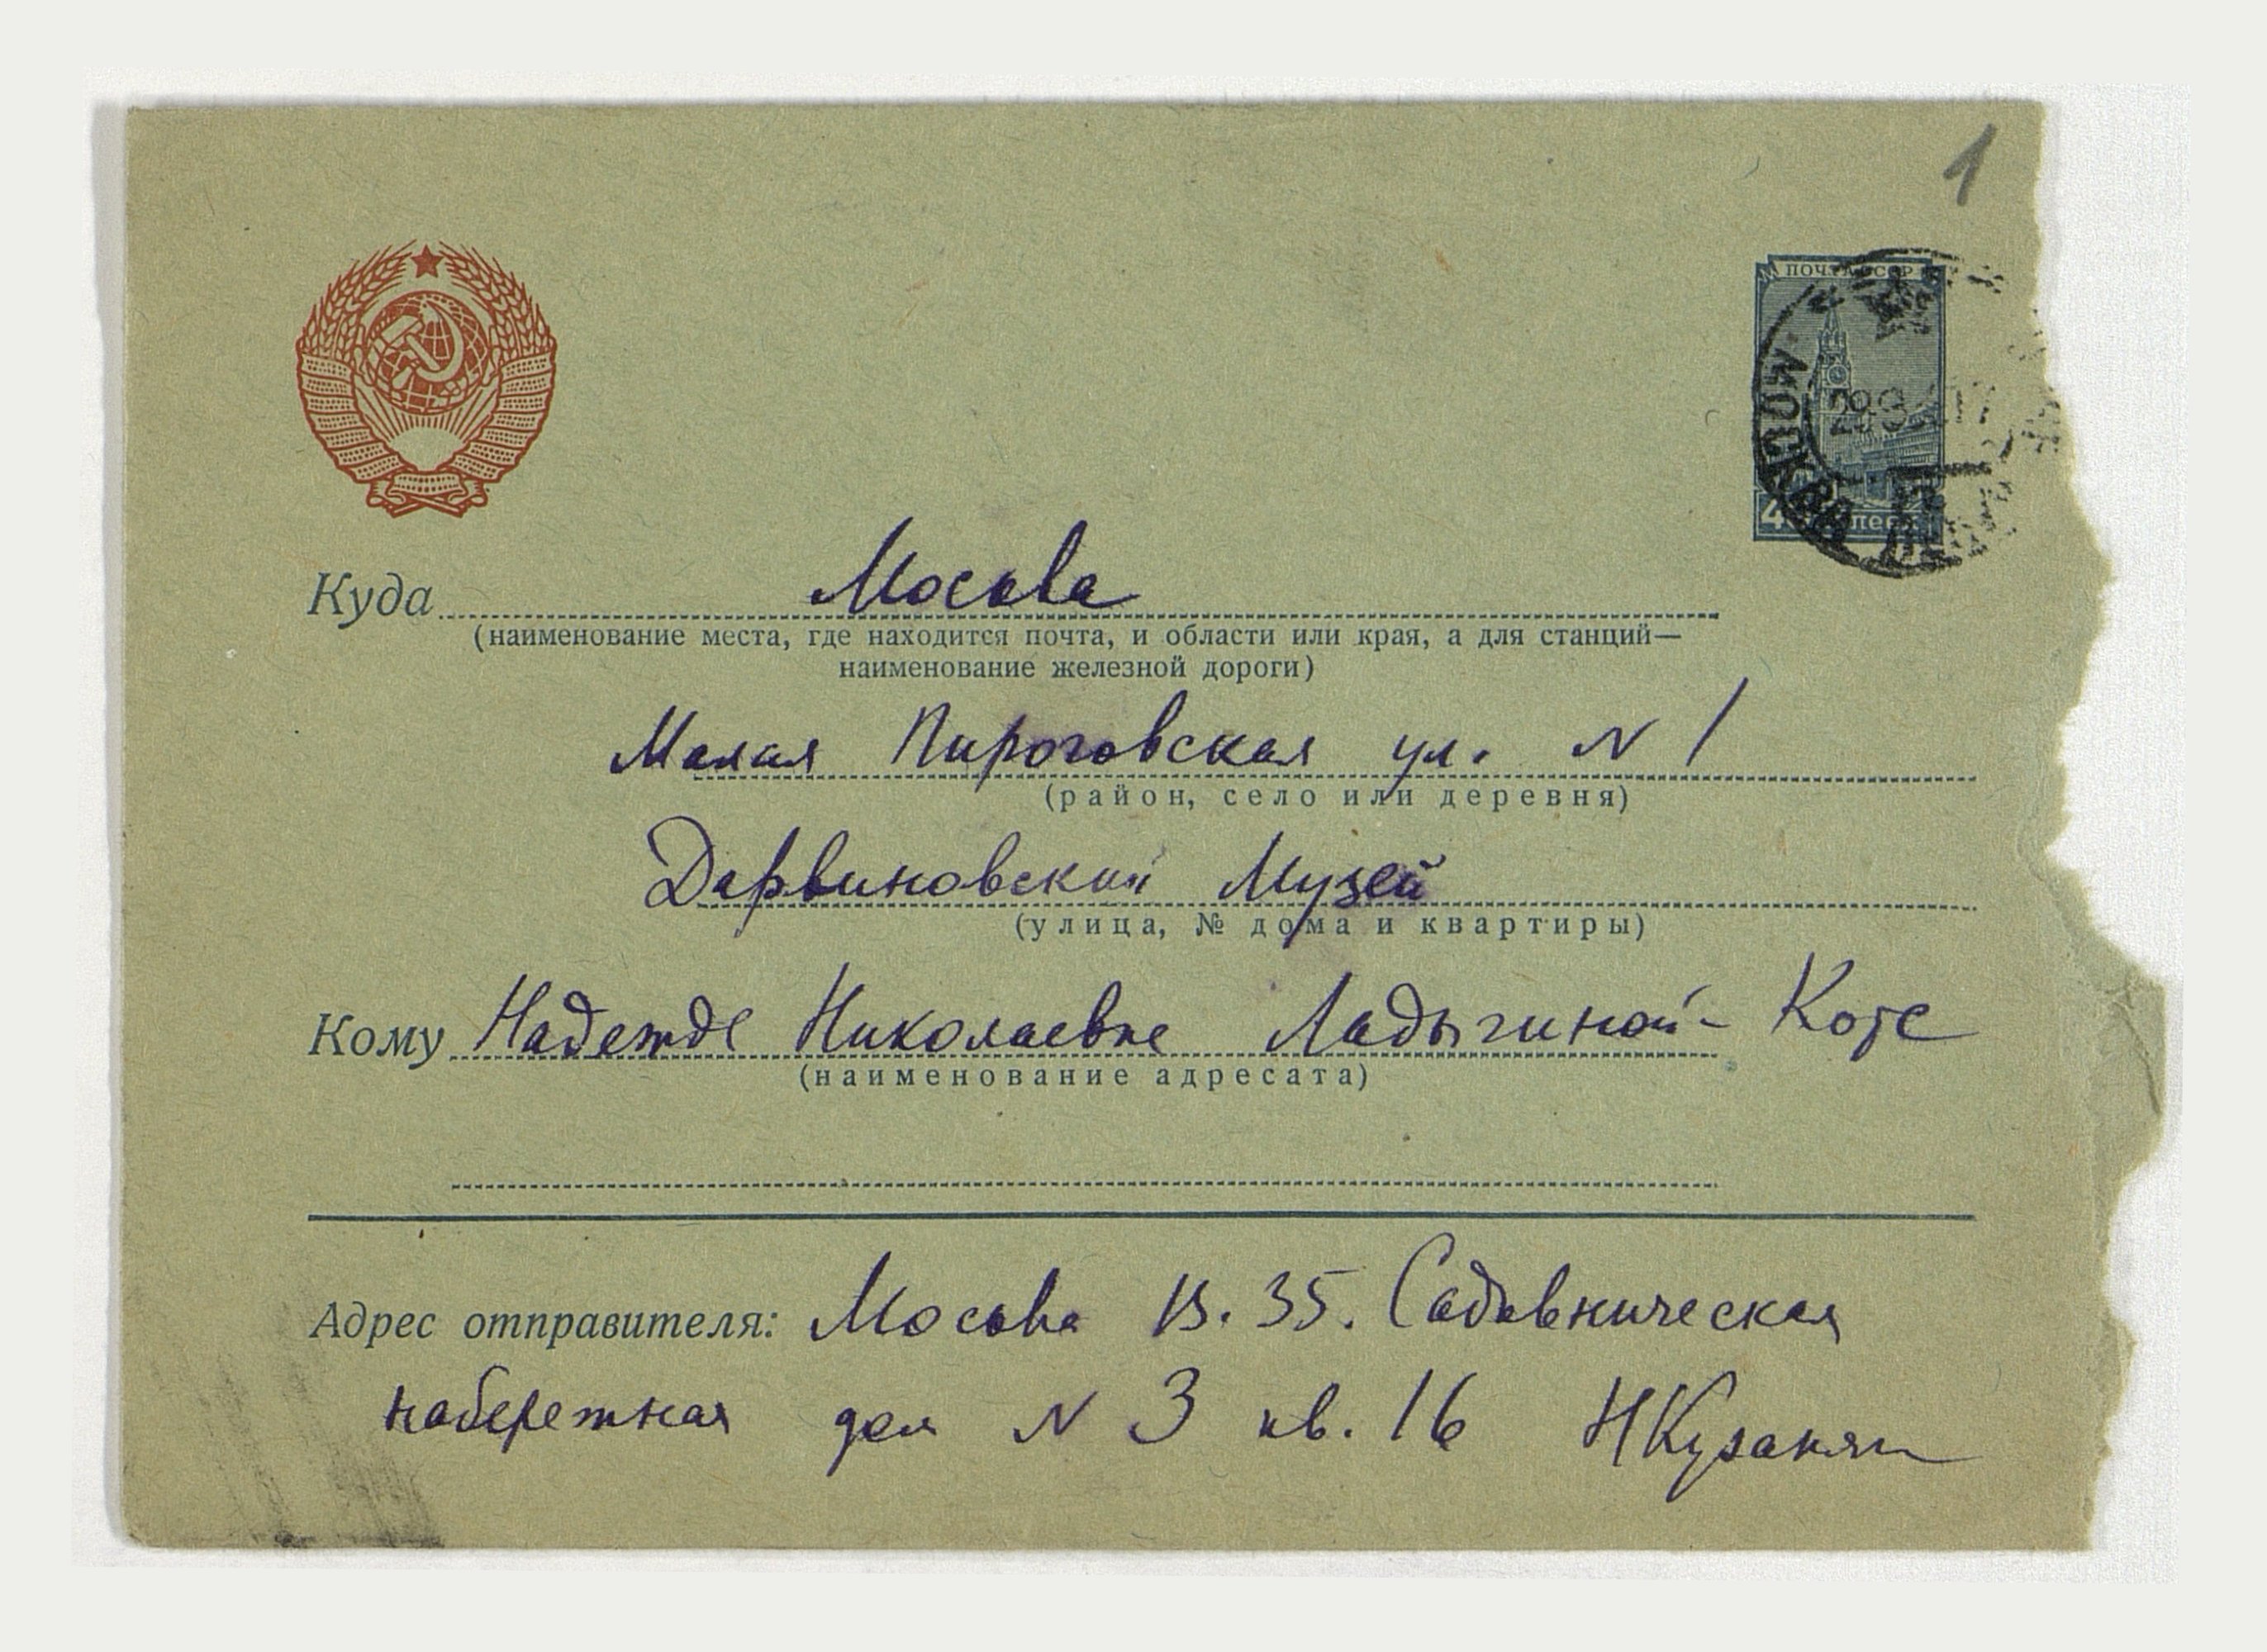 1
ПОЧТА СССР
МОСКВА
Куда Москва
(наименование места, где находится почта, и области или края, а для станций—
наименование железной дороги)
Малая Пироговская ул. N 1
(район, село или деревня)
Дарвиновский Музей
(улица, № дома и квартиры)
Кому Надежде Николаевне Ладыгиной- Котс
(наименование адресата)
Адрес отправителя: Москва В. 35. Садовническая
набережная дом N 3 кв. 16